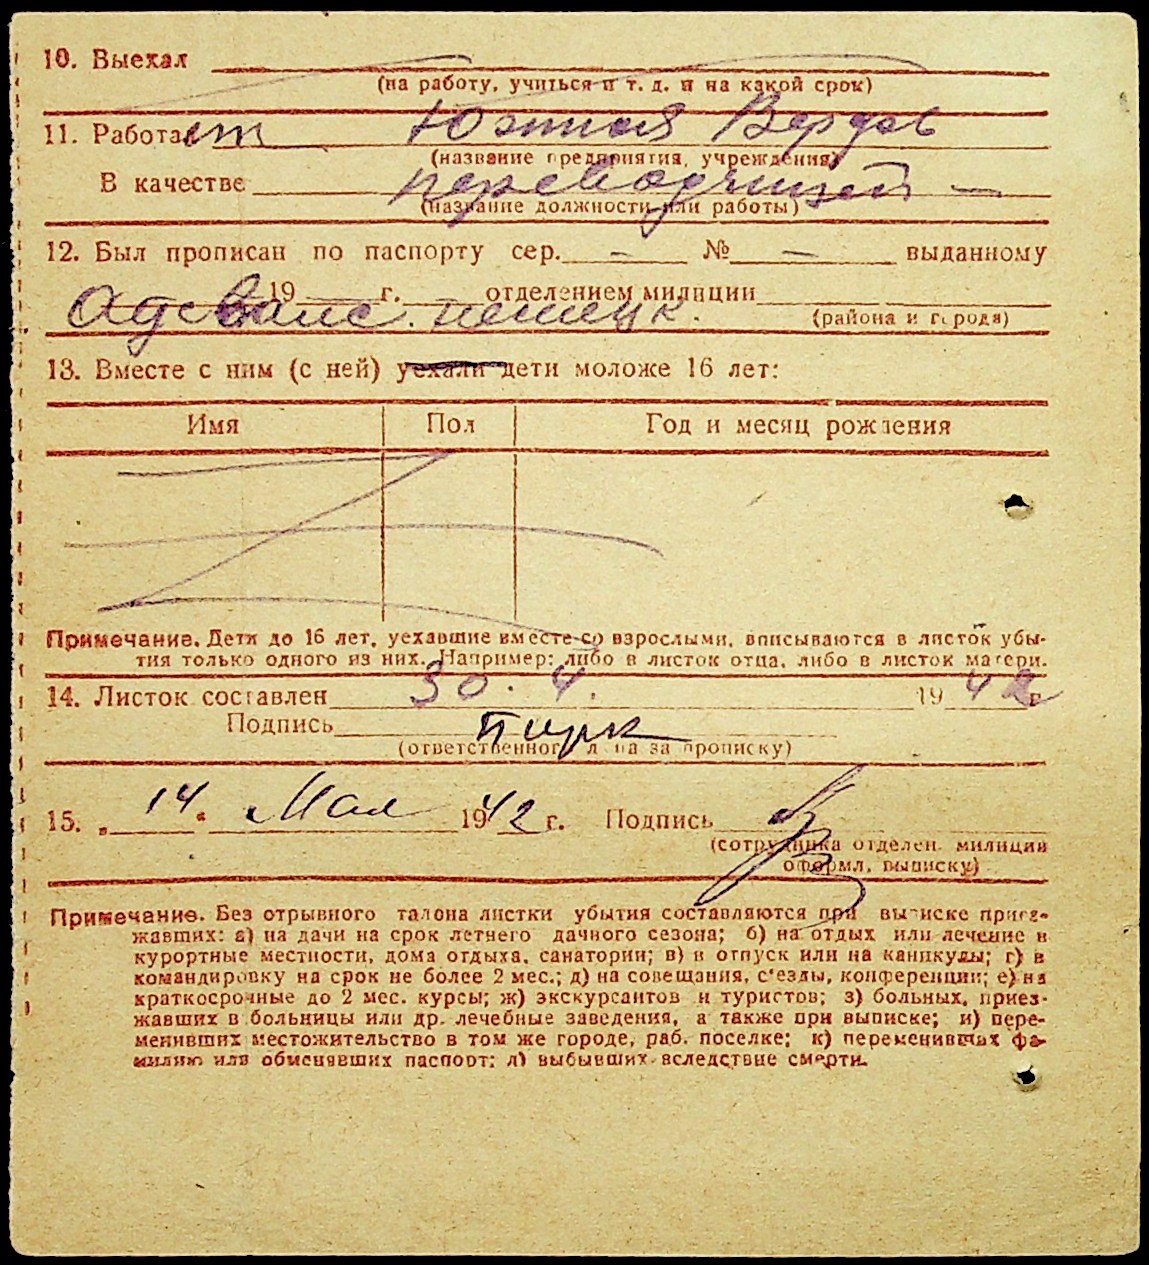 10. Выехал
(на работу, учиться и т. д. и на какой срок)
11. Работает Южная Верфь
(название предприятия, учреждения)
В качестве переводчицей —
(название должности или работы)
12. Был прописан по паспорту сер. — № — выданному
19 г. отделением милиции
немецк.
(района и города)
13. Вместе с ним (с ней) уехали дети моложе 16 лет:
Имя Пол Год и месяц рождения
Примечание. Дети до 16 лет, уехавшие вместе со взрослыми, вписываются в листок убы-
тия только одного из них. Например: либо в листок отца, либо в листок матери.
14. Листок составлен 30. 4. 1942 г.
Подпись
(ответственного лица за прописку)
15. „14“ Мая 1942 г. Подпись
(сотрудника отделен. милиции
оформл. выписку)
Примечание. Без отрывного талона листки убытия составляются при выписке приез-
жавших: а) на дачи на срок летнего дачного сезона; б) на отдых или лечение в
курортные местности, дома отдыха, санатории; в) в отпуск или на каникулы; г) в
командировку на срок не более 2 мес.; д) на совещания, с'езды, конференции; е) на
краткосрочные до 2 мес. курсы; ж) экскурсантов и туристов; з) больных, приез-
жавших в больницы или др. лечебные заведения, а также при выписке; и) пере-
менивших местожительство в том же городе, раб. поселке; к) переменивших фа-
милию или обменявших паспорт; л) выбывших вследствие смерти.